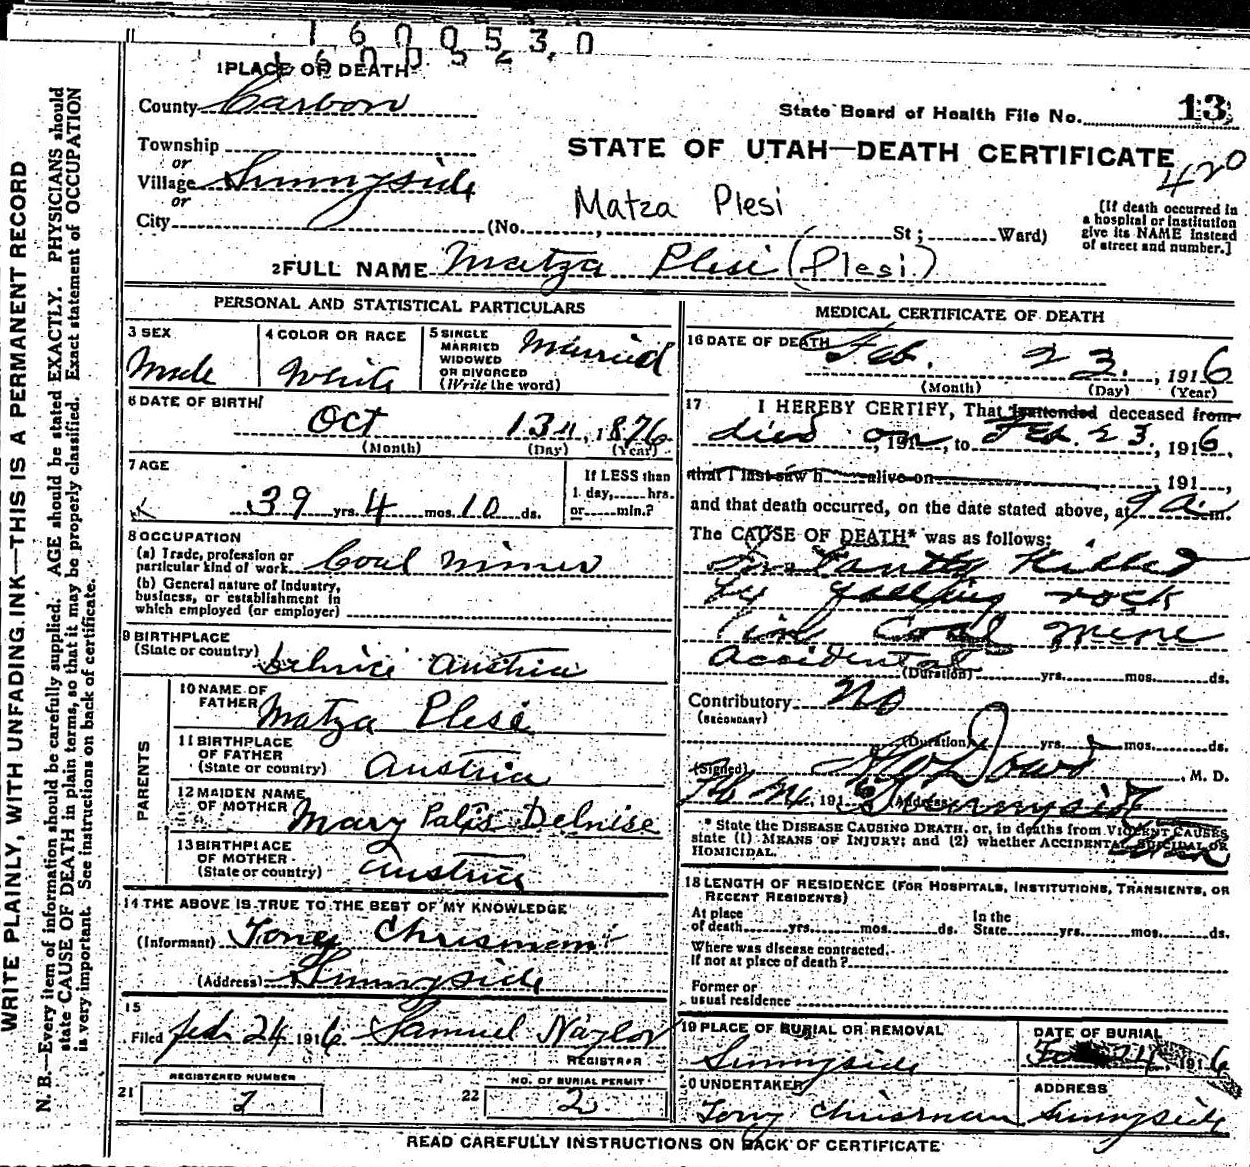 1600530
1PLACE OF DEATH
County Carbon
State Board of Health File No. 13
Township
or
Village Sunnyside
or
City (No. , St; Ward)
STATE OF UTAH—DEATH CERTIFICATE
420
Matza Plesi
[If death occurred in
a hospital or institution
give its NAME instead
of street and number.]
2FULL NAME Matza Plesi (Plesi)
PERSONAL AND STATISTICAL PARTICULARS
3 SEX
Male
4 COLOR OR RACE
White
5 SINGLE
MARRIED
WIDOWED
OR DIVORCED
(Write the word)
Married
6 DATE OF BIRTH
Oct 13, 1876
(Month) (Day) (Year)
7 AGE
39 yrs. 4 mos. 10 ds.
If LESS than
1 day, hrs.
or min.?
8 OCCUPATION
(a) Trade, profession or
particular kind of work Coal miner
(b) General nature of industry,
business, or establishment in
which employed (or employer)
9 BIRTHPLACE
(State or country) Austria
PARENTS
10 NAME OF
FATHER Matza Plesi
11 BIRTHPLACE
OF FATHER
(State or country) Austria
12 MAIDEN NAME
OF MOTHER Mary Delnise
13 BIRTHPLACE
OF MOTHER
(State or country) Austria
14 THE ABOVE IS TRUE TO THE BEST OF MY KNOWLEDGE
(Informant) Tony Chrisman
(Address) Sunnyside
15
Filed Feb 24 1916 Samuel Naylor
REGISTRAR
REGISTERED NUMBER
21 2
NO. OF BURIAL PERMIT
22 2
MEDICAL CERTIFICATE OF DEATH
16 DATE OF DEATH
Feb. 23, 1916
(Month) (Day) (Year)
17 I HEREBY CERTIFY, That I attended deceased from
died on, 191, to Feb 23, 1916,
that I last saw h alive on , 191 ,
and that death occurred, on the date stated above, at 9 a.m.
The CAUSE OF DEATH* was as follows:
Instantly Killed
by falling rock
in coal mine
accidental
(Duration) yrs. mos. ds.
Contributory No
(SECONDARY)
(Duration) yrs. mos. ds.
(Signed) Dowd M. D.
Feb 24, 1916 (Address) Sunnyside
* State the DISEASE CAUSING DEATH, or, in deaths from VIOLENT CAUSES
state (1) MEANS OF INJURY; and (2) whether ACCIDENTAL, SUICIDAL OR
HOMICIDAL.
18 LENGTH OF RESIDENCE (FOR HOSPITALS, INSTITUTIONS, TRANSIENTS, OR
RECENT RESIDENTS)
At place
of death yrs. mos. ds.
In the
State yrs. mos. ds.
Where was disease contracted,
If not at place of death?
Former or
usual residence
19 PLACE OF BURIAL OR REMOVAL
Sunnyside
DATE OF BURIAL
Feb 24, 1916
20 UNDERTAKER
Tony Chrisman
ADDRESS
Sunnyside
READ CAREFULLY INSTRUCTIONS ON BACK OF CERTIFICATE
WRITE PLAINLY, WITH UNFADING INK—THIS IS A PERMANENT RECORD
N. B.—Every item of information should be carefully supplied. AGE should be stated EXACTLY. PHYSICIANS should
state CAUSE OF DEATH in plain terms, so that it may be properly classified. Exact statement of OCCUPATION
is very important. See instructions on back of certificate.